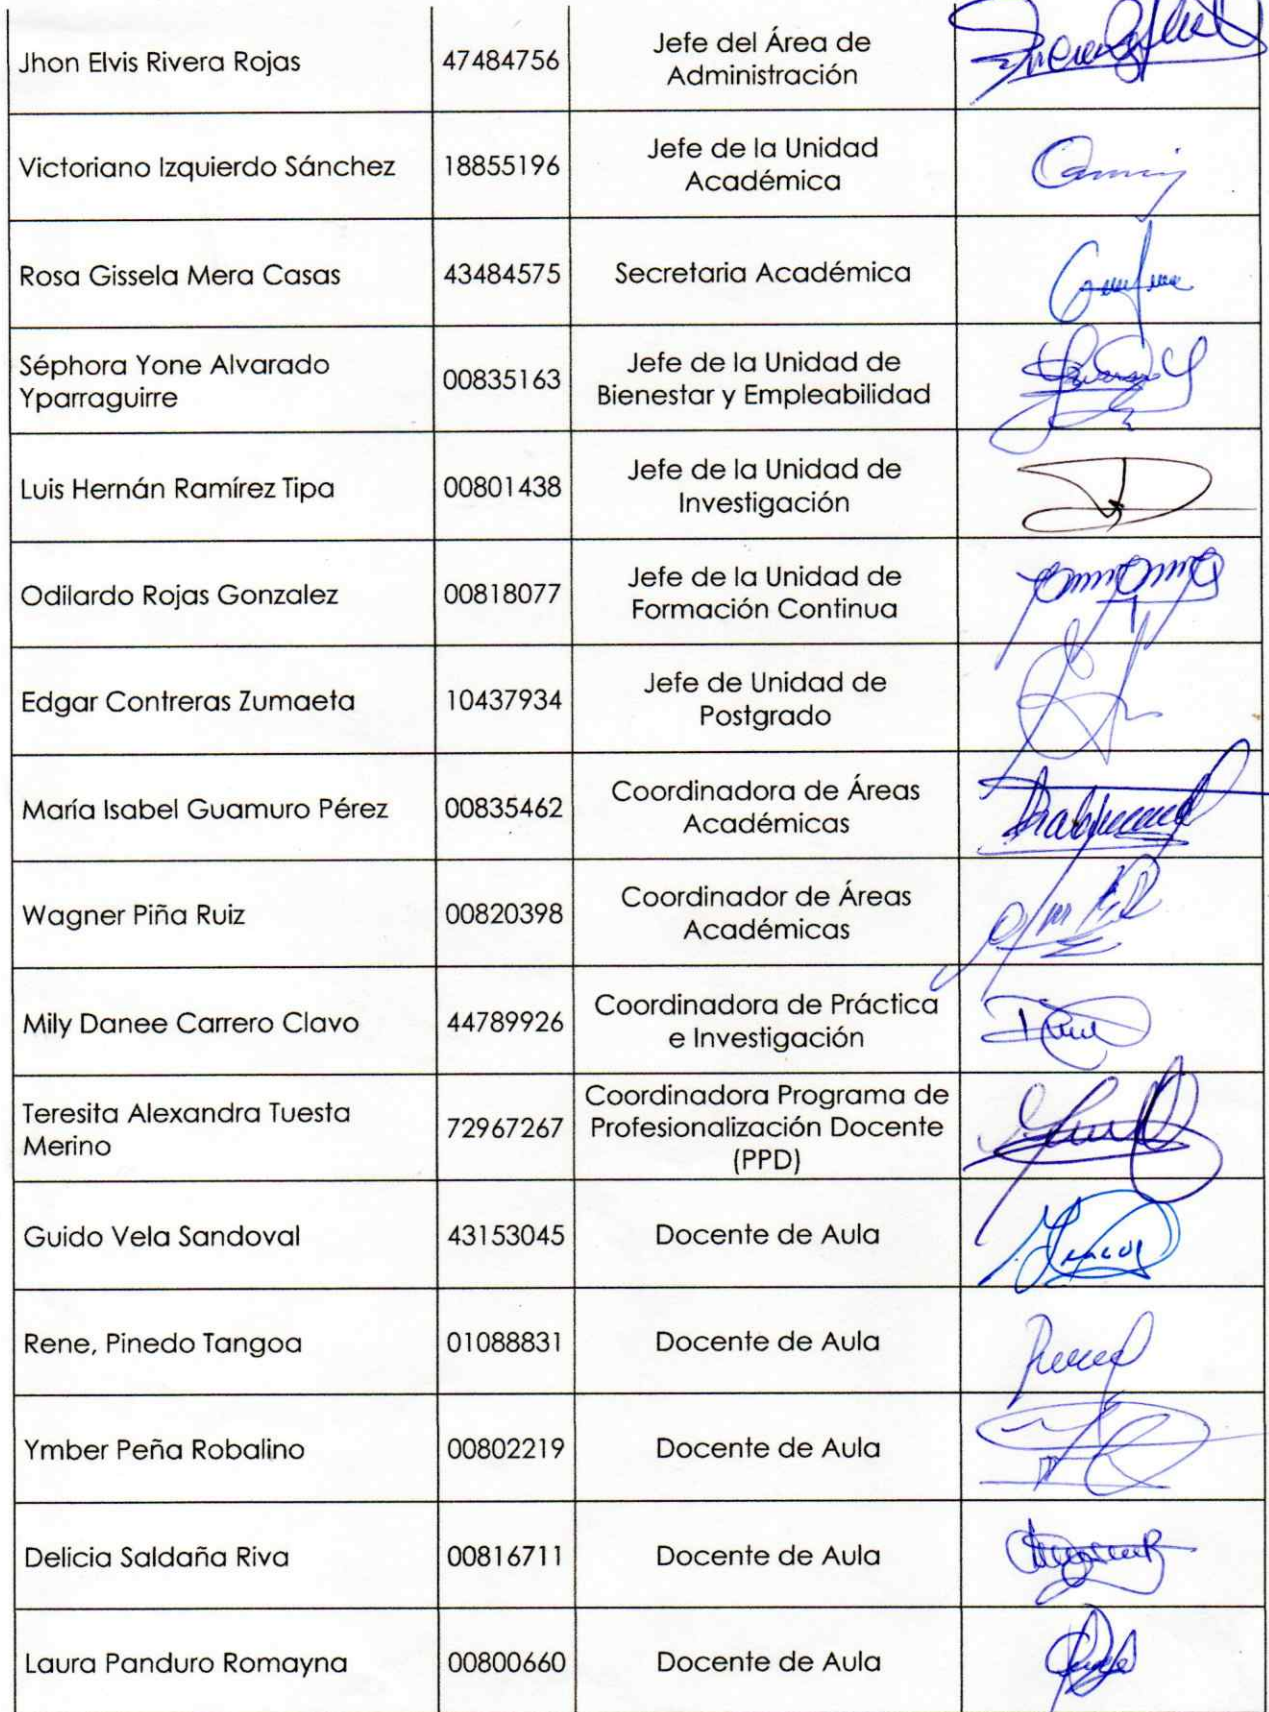 Jhon Elvis Rivera Rojas 47484756 Jefe del Área de
Administración
Victoriano Izquierdo Sánchez 18855196 Jefe de la Unidad
Académica
Rosa Gissela Mera Casas 43484575 Secretaria Académica
Séphora Yone Alvarado
Yparraguirre 00835163 Jefe de la Unidad de
Bienestar y Empleabilidad
Luis Hernán Ramírez Tipa 00801438 Jefe de la Unidad de
Investigación
Odilardo Rojas Gonzalez 00818077 Jefe de la Unidad de
Formación Continua
Edgar Contreras Zumaeta 10437934 Jefe de Unidad de
Postgrado
María Isabel Guamuro Pérez 00835462 Coordinadora de Áreas
Académicas
Wagner Piña Ruiz 00820398 Coordinador de Áreas
Académicas
Mily Danee Carrero Clavo 44789926 Coordinadora de Práctica
e Investigación
Teresita Alexandra Tuesta
Merino 72967267 Coordinadora Programa de
Profesionalización Docente
(PPD)
Guido Vela Sandoval 43153045 Docente de Aula
Rene, Pinedo Tangoa 01088831 Docente de Aula
Ymber Peña Robalino 00802219 Docente de Aula
Delicia Saldaña Riva 00816711 Docente de Aula
Laura Panduro Romayna 00800660 Docente de Aula